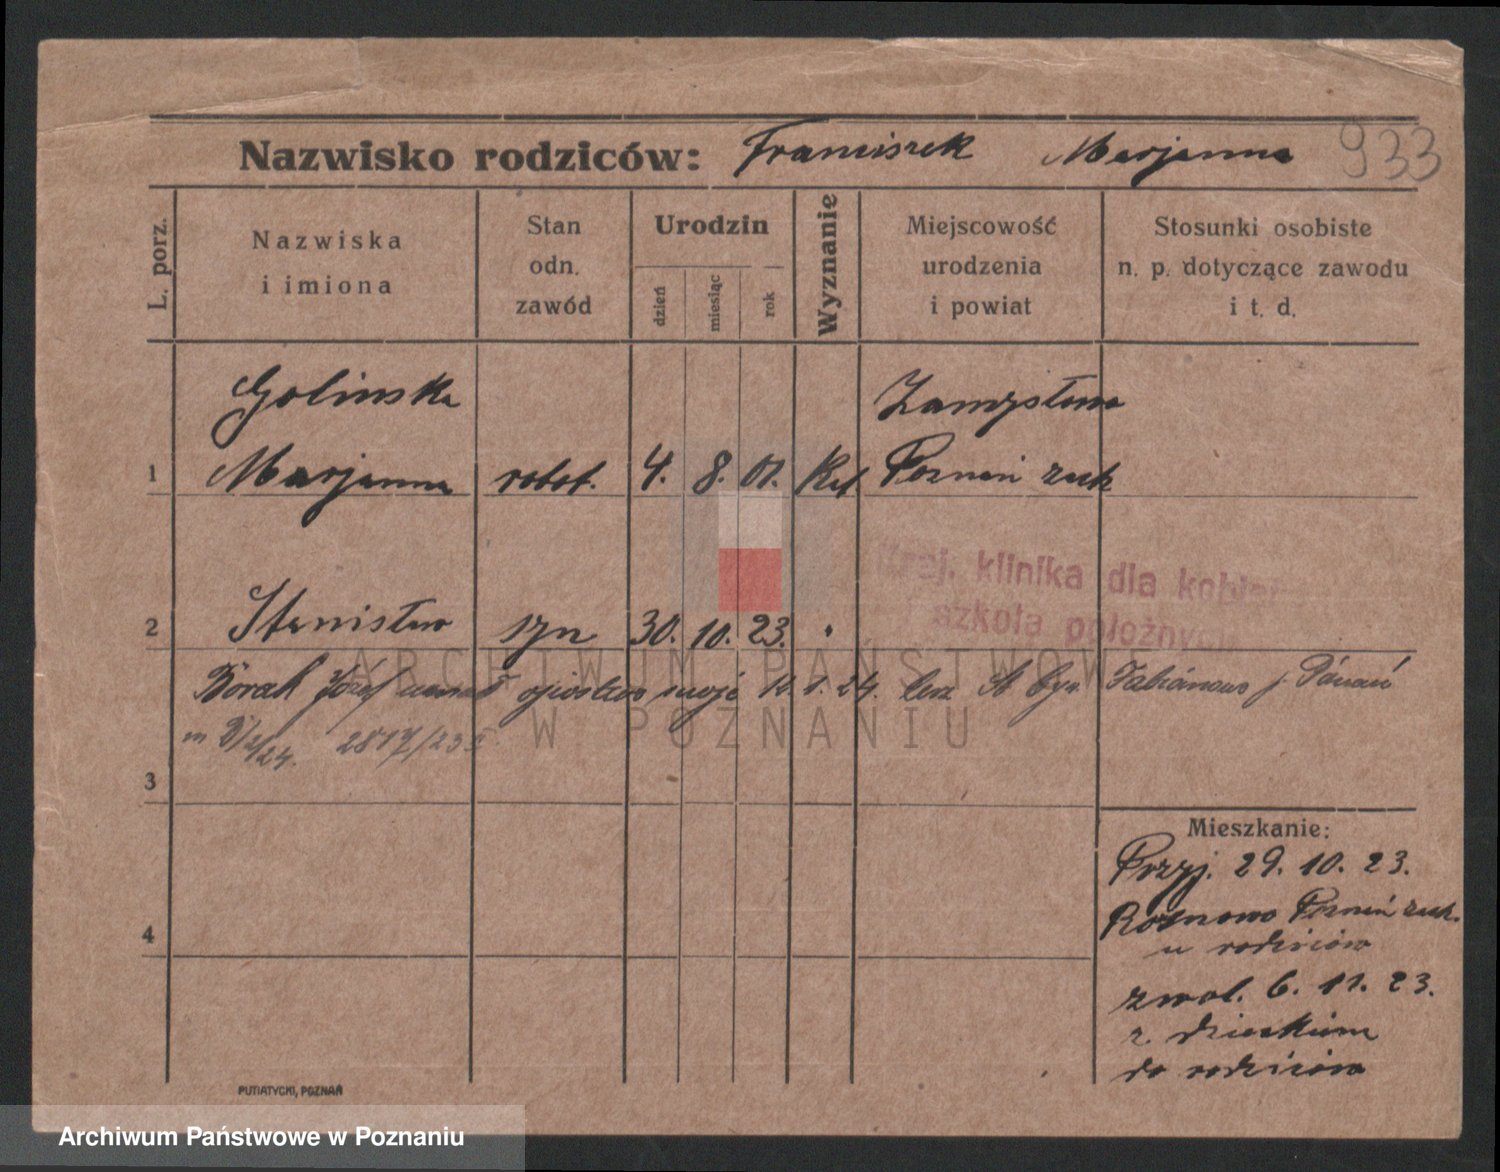 933
Nazwisko rodziców: Franciszek Marjanna
L. porz.
Nazwiska
i imiona
Stan
odn.
zawód
Urodzin
dzień
miesiąc
rok
Wyznanie
Miejscowość
urodzenia
i powiat
Stosunki osobiste
n. p. dotyczące zawodu
i t. d.
Golinska Zamysłowo
1 Marjanna robot. 4. 8. 01. Kat Poznań zach
Kraj. klinika dla kobiet
i szkoła położnych
2 Stanisław syn 30. 10. 23.
Borak Józef uznał ojcostwo swoje 12. 1. 24. Fabianowo p. Poznań
2817/23
3
ARCHIWUM PAŃSTWOWE
W POZNANIU
Mieszkanie:
Przyj. 29. 10. 23.
Rosnowo Poznań zach.
u rodziców
4
zwol. 6. 11. 23.
z dzieckiem
do rodziców
PUTIATYCKI, POZNAŃ
Archiwum Państwowe w Poznaniu